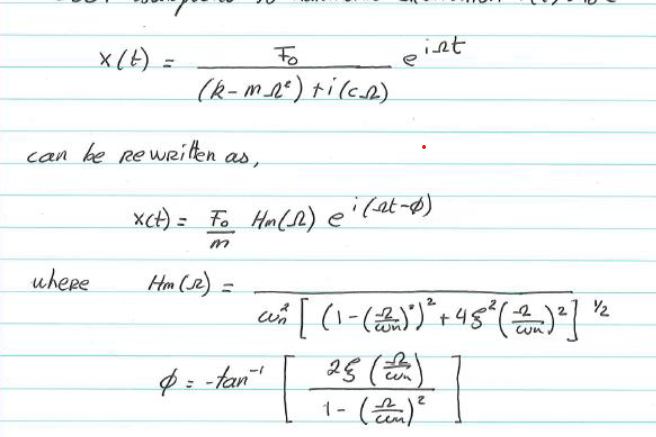 x(t) = F₀ / ((k - mΩ²) + i(cΩ)) e^{iΩt}
can be rewritten as,
x(t) = F₀/m Hm(Ω) e^{i(Ωt-φ)}
where Hm(Ω) = / ωn² [ (1 - (Ω/ωn)²)² + 4ξ² (Ω/ωn)² ]^{1/2}
φ = -tan⁻¹ [ 2ξ (Ω/ωn) / (1 - (Ω/ωn)²) ]